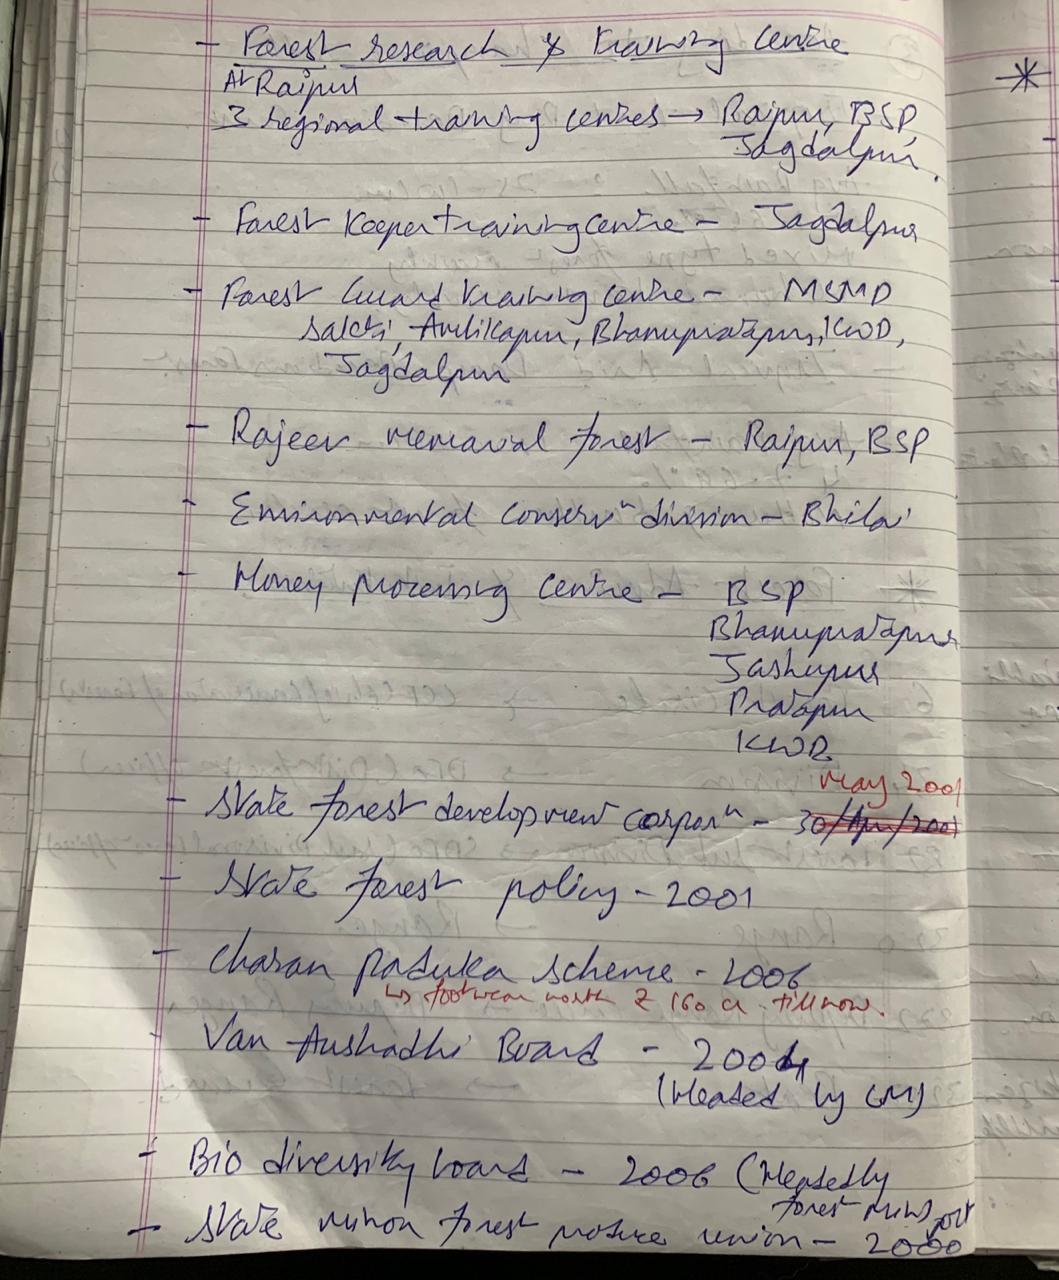 - Forest research & training centre
At Raipur
3 regional training centres → Raipur, BSP,
Jagdalpur.
- Forest Keeper training centre - Jagdalpur
- Forest Guard training centre - MSMD
Sakti, Ambikapur, Bhanupratapur, KWD,
Jagdalpur
- Rajeev memorial forest - Raipur, BSP
- Environmental conservⁿ division - Bhilai
- Honey processing centre - BSP
Bhanupratapur
Jashpur
Pratapur
KWD
May 2001
- State forest development corporⁿ - 30/Apr/2001
- State forest policy - 2001
- Charan Paduka scheme - 2006
↳ footwear worth ₹ 160 cr till now.
Van Aushadhi Board - 2004
(Headed by CM)
- Bio diversity board - 2006 (Headed by
forest min)
- State minor forest produce union - 2000